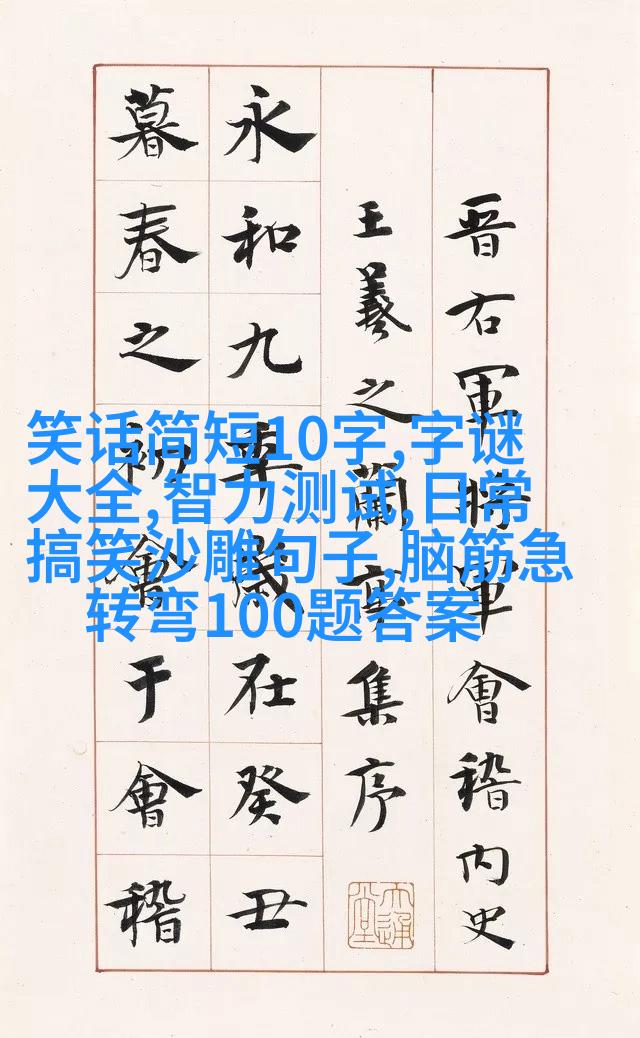 晋右軍將軍會稽内史
王羲之蘭亭集序
永和九年歲在癸丑
暮春之初會于會稽
笑话简短10字,字谜
大全,智力测试,日常
搞笑沙雕句子,脑筋急
转弯100题答案